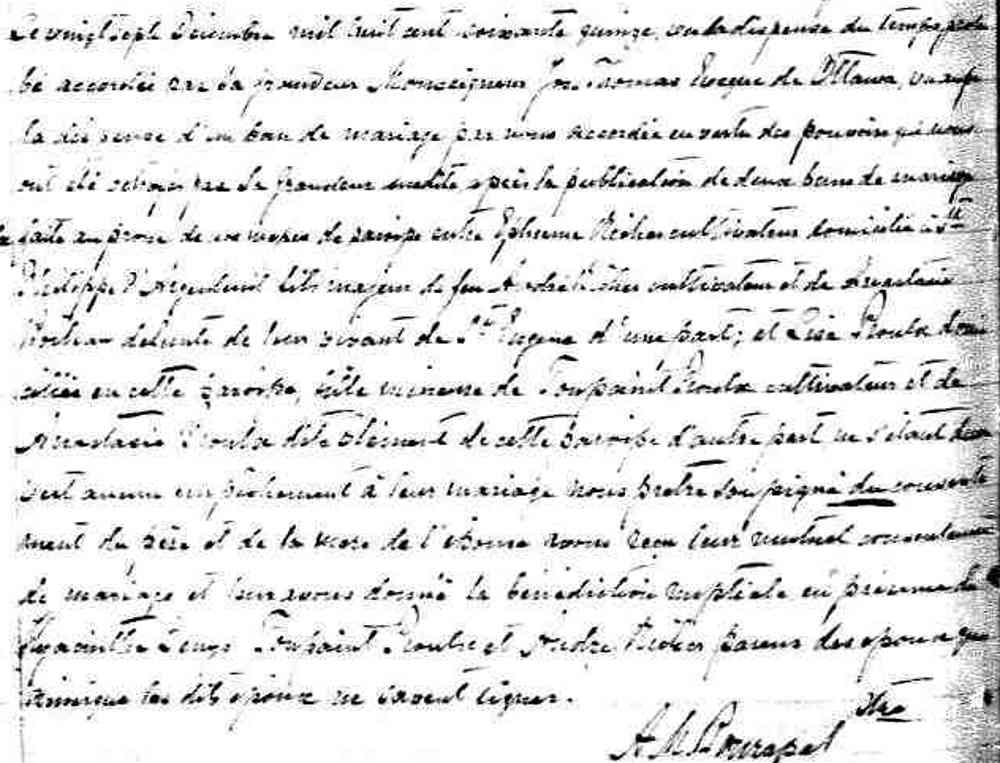 Le vingt sept Décembre mil huit cent soixante quinze, vu la dispense du temps prohi
bé accordée par Sa grandeur Monseigneur Jos. Thomas Eveque de Ottawa, vu aussi
la dispense d'un ban de mariage par nous accordée en vertu des pouvoirs qui nous
ont été octroyés par Sa grandeur susdite après la publication de deux bans de mariage
faite au prone de nos messes de paroisse entre Ephreme Richer cultivateur domicilié à St
Philippe d'Argenteuil fils majeur de feu André Richer cultivateur et de Anastasie
defunte de leur vivant de St Eugene d'une part; et Lise Proulx domi
ciliée en cette paroisse, fille mineure de Toussaint Proulx cultivateur et de
Anastasie Proulx dite Clément de cette paroisse d'autre part ne s'étant decou
vert aucun empêchement à leur mariage nous pretre soussigné du consente
ment du père et de la mere de l'épouse avons reçu leur mutuel consentement
de mariage et leur avons donné la bénédiction nuptiale en présence de
Hyacinthe Toussaint Proulx et André Richer parens des époux qui
ainsi que les dits époux ne savent signer.
A. M. Ptre